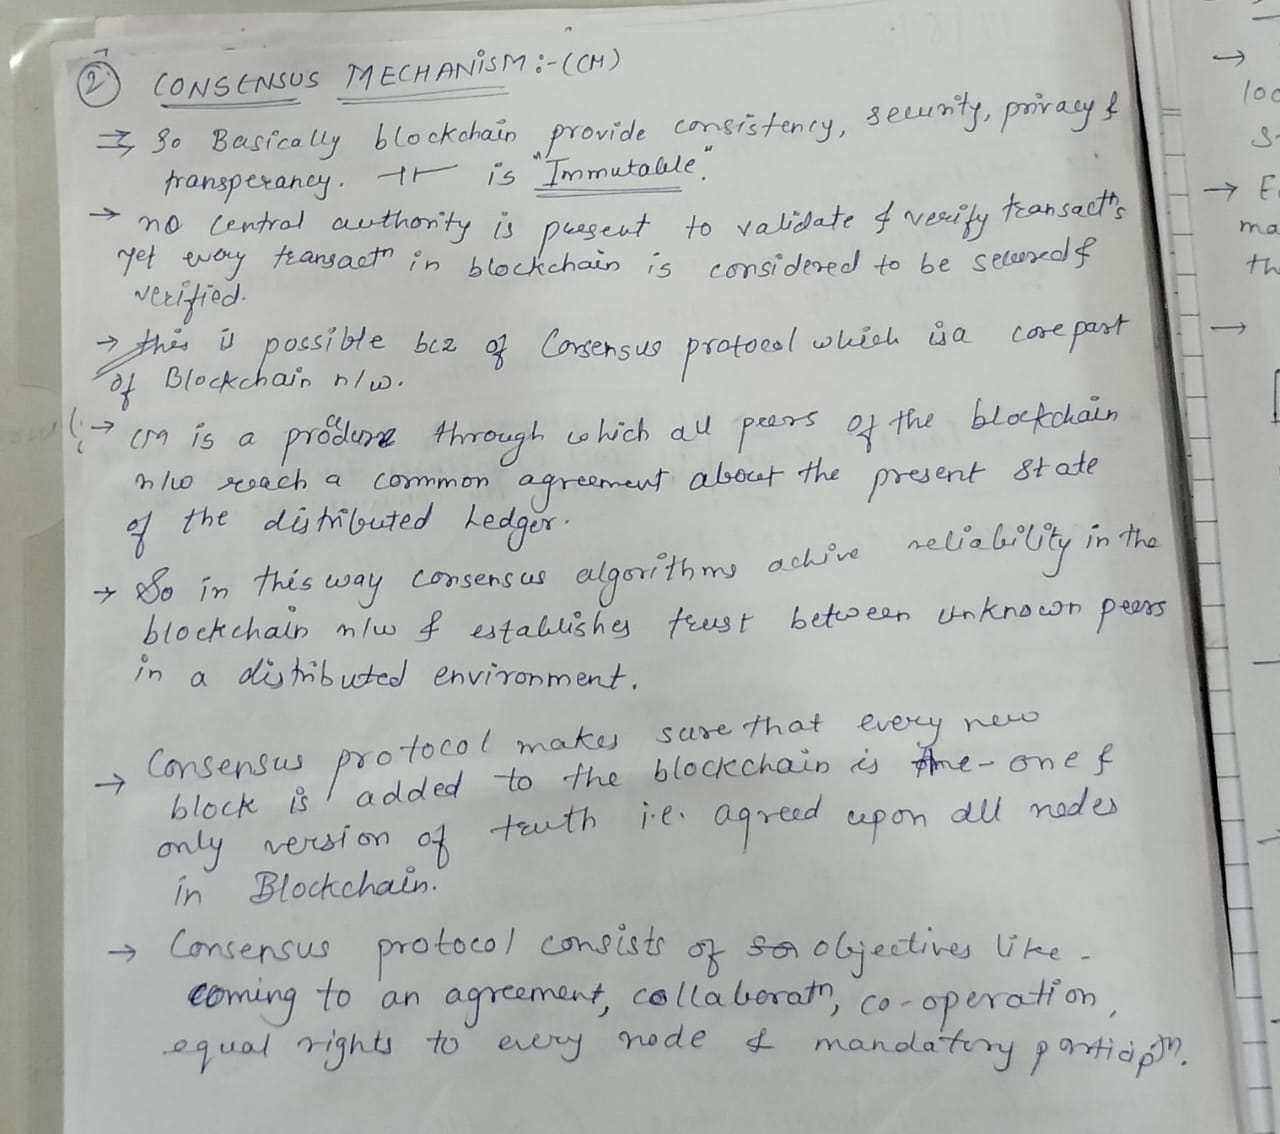 2 CONSENSUS MECHANISM :- (CM)
⇒ So Basically blockchain provide consistency, security, privacy &
transperancy. It is "Immutable".
→ no central authority is present to validate & verify transactn's
yet every transactn in blockchain is considered to be secured &
verified.
→ this is possible bcz of Consensus protocol which is a core part
of Blockchain n/w.
→ CM is a procedure through which all peers of the blockchain
n/w reach a common agreement about the present state
of the distributed Ledger.
→ So in this way consensus algorithms achive reliability in the
blockchain n/w & establishes trust between unknown peers
in a distributed environment.
→ Consensus protocol makes sure that every new
block is added to the blockchain is the one &
only version of truth i.e. agreed upon all nodes
in Blockchain.
→ Consensus protocol consists of objectives like -
coming to an agreement, collaboratn, co-operation,
equal rights to every node & mandatory participtn.
→
loc
S
→ E
ma
th
→